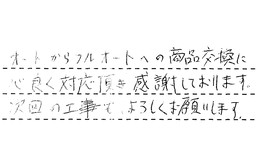 オートからフルオートへの商品交換に
心良く対応頂き感謝しております。
次回の工事も、よろしくお願いします。